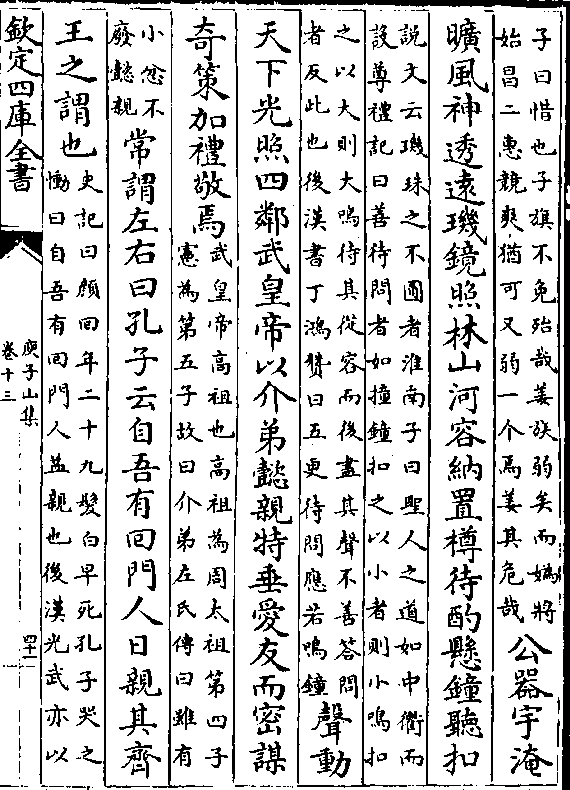 子曰惜也子旗不免殆哉姜族弱矣而媯將
始昌二惠競爽猶可又弱一个焉姜其危哉
公器宇淹
曠風神透遠璣鏡照林山河容納置樽待酌懸鐘聽扣
說文云璣珠之不圓者淮南子曰聖人之道如中衢而
設尊禮記曰善待問者如撞鐘扣之以小者則小鳴扣
之以大則大鳴待其從容而後盡其聲不善答問
者反此也後漢書丁鴻贊曰五更待問應若鳴鐘
聲動
天下光照四鄰武皇帝以介弟懿親特垂愛友而密謀
奇策加禮敬焉
武皇帝高祖也高祖為周太祖第四子
憲為第五子故曰介弟左氏傳曰雖有
小忿不
廢懿親
常謂左右曰孔子云自吾有回門人日親其齊
王之謂也
史記曰顏回年二十九髮白早死孔子哭之
慟曰自吾有回門人益親也後漢光武亦以
欽定四庫全書
庾子山集
卷十三
四十一